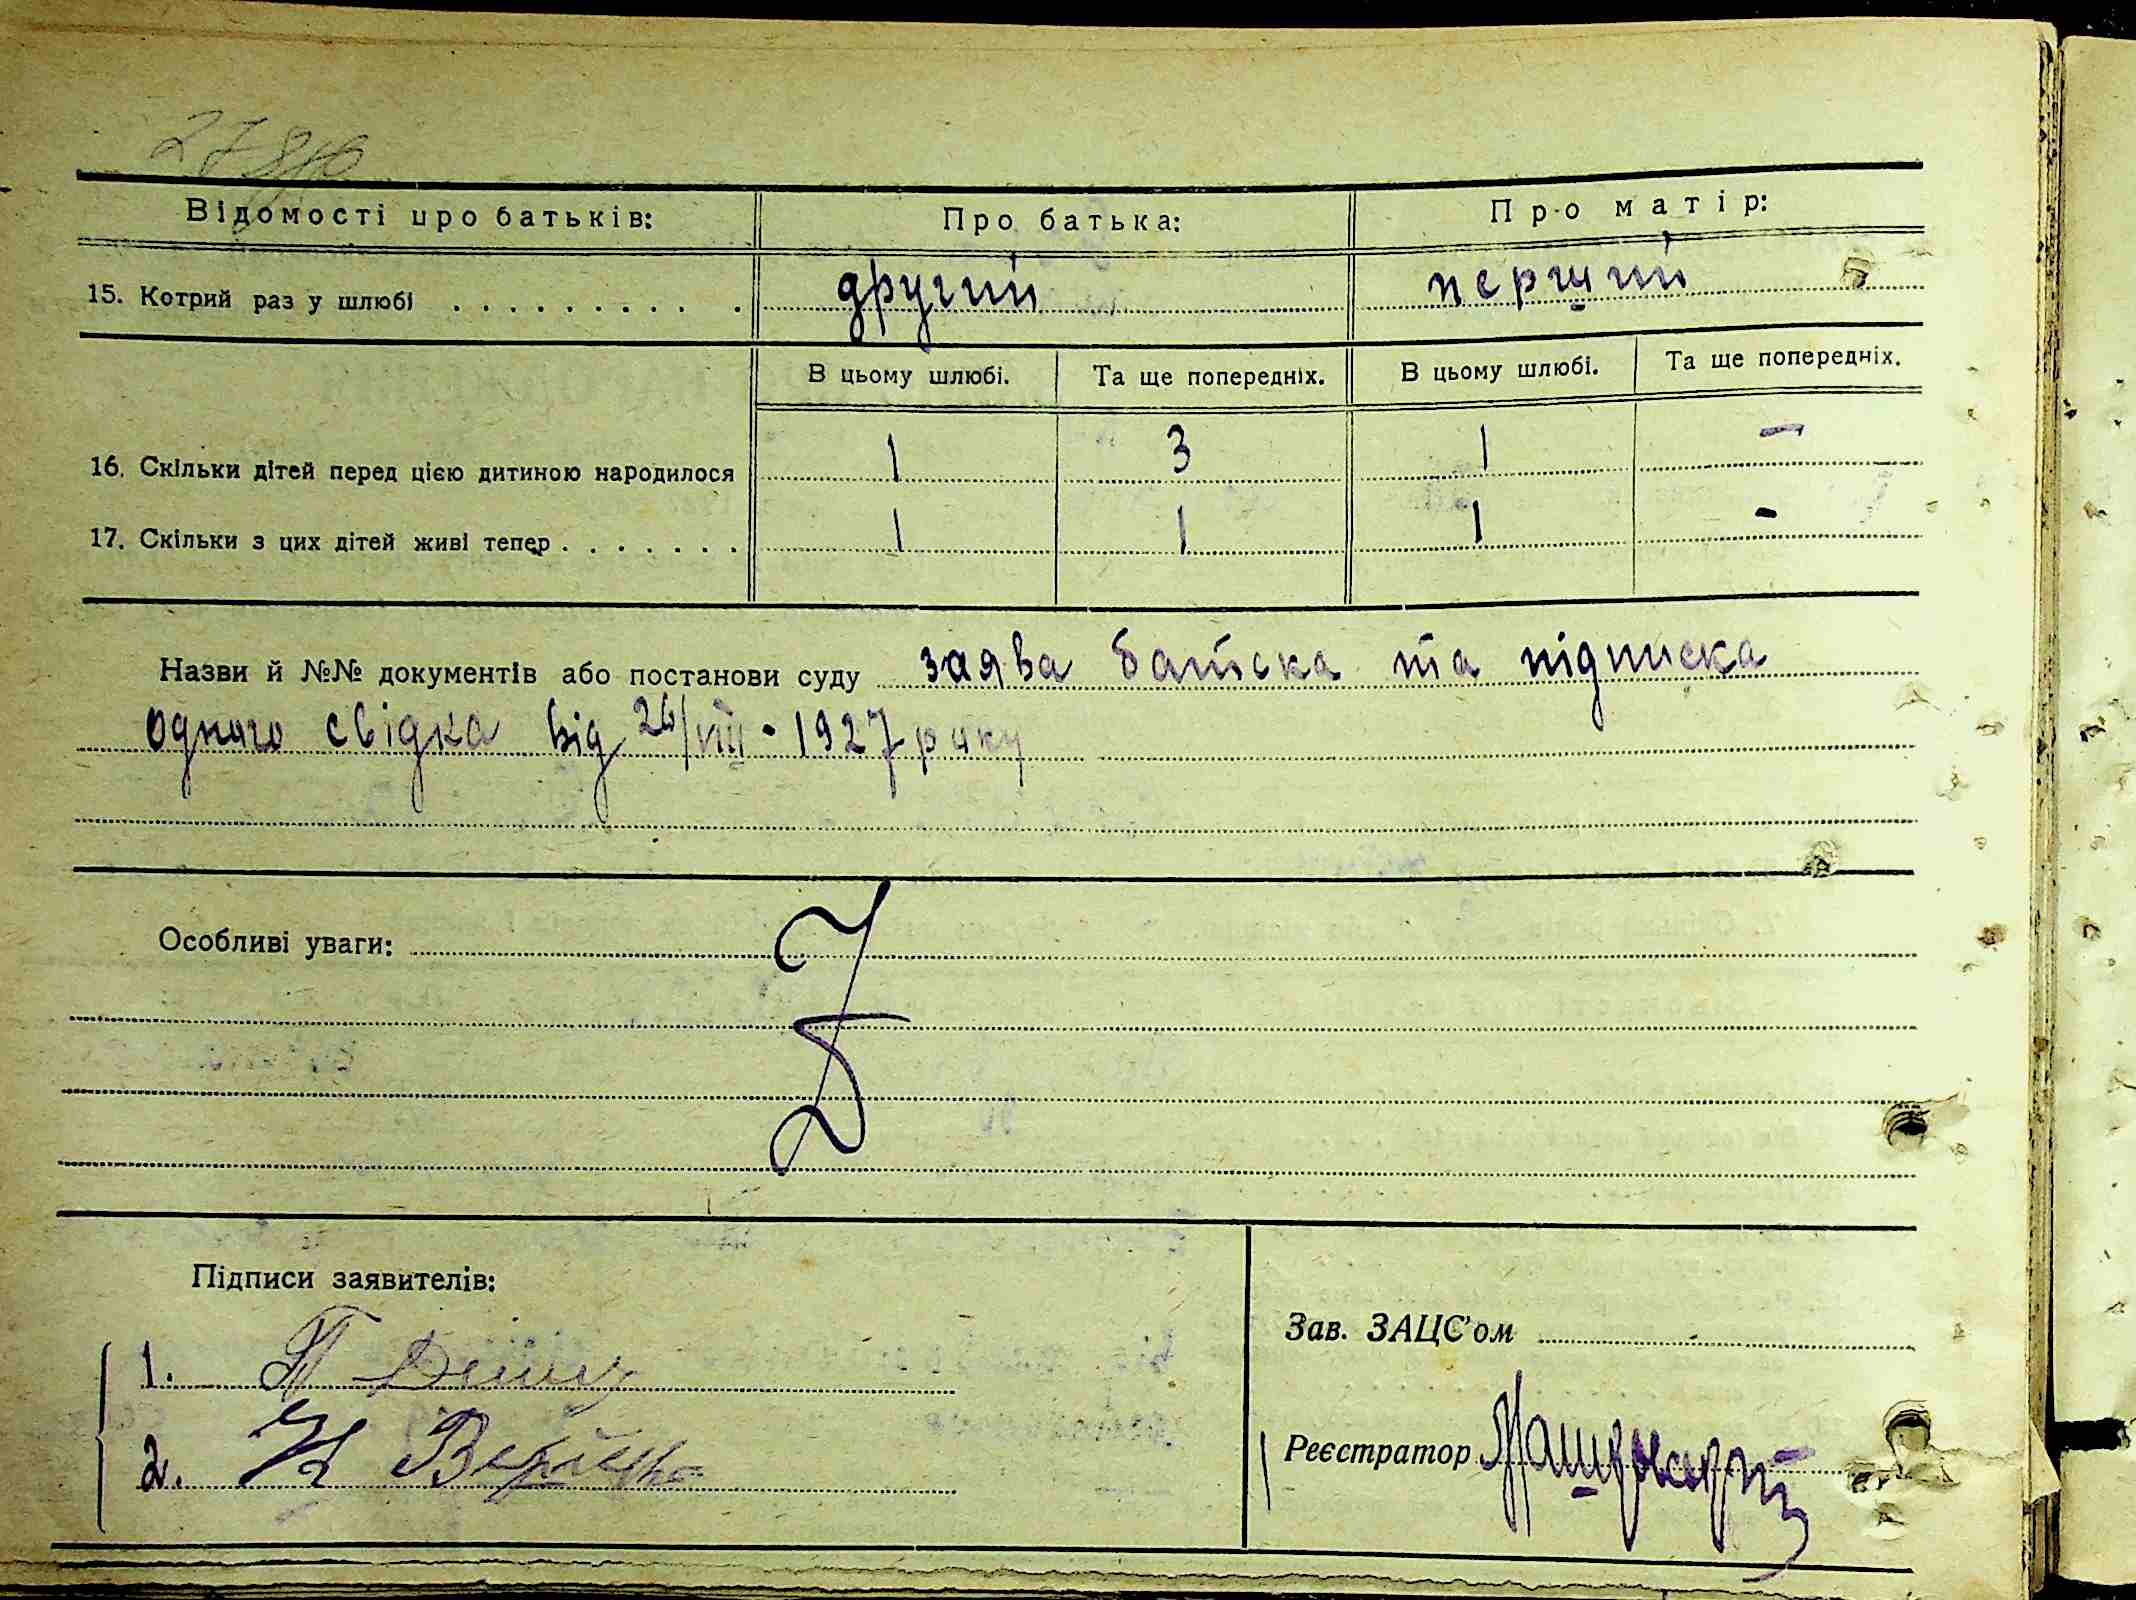 Відомості про батьків: Про батька: Про матір:
15. Котрий раз у шлюбі . . . . . . . . . . другий перший
В цьому шлюбі. Та ще попередніх. В цьому шлюбі. Та ще попередніх.
16. Скільки дітей перед цією дитиною народилося 1 3 1 —
17. Скільки з цих дітей живі тепер . . . . . . . 1 1 1 -
Назви й №№ документів або постанови суду заява батька та підписка
одного свідка від 26/VIII · 1927 року
Особливі уваги:
Підписи заявителів:
Зав. ЗАЦС'ом
1. П
2.
Реєстратор